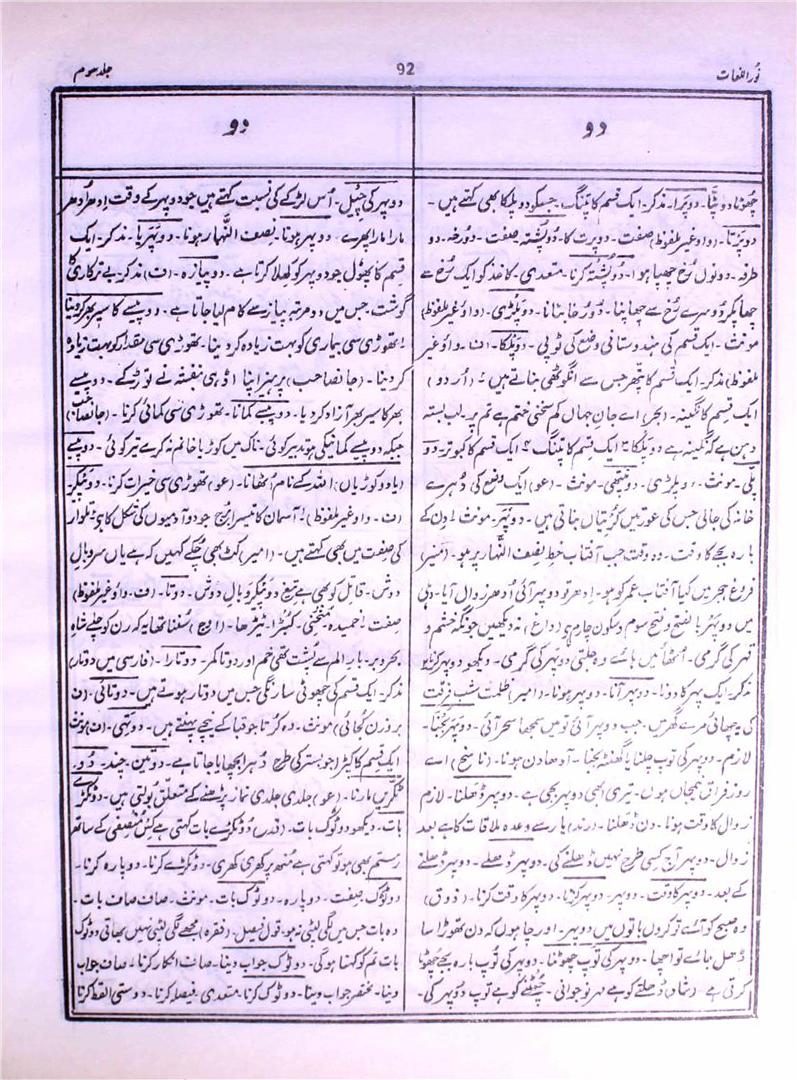 نورُ اللغات
92
جلد سوم
دو
چھوٹا دوپٹّا۔ دوپَرا۔ مذکر۔ ایک قسم کا پتنگ۔ جسکو دوپلکا بھی کہتے ہیں۔
دوپَرتا۔ (واو غیر ملفوظ) صفت۔ دوپرت کا۔ دُوپُشتہ صفت۔ دورخہ۔ دو
طرفہ۔ دونوں رُخ چھپا ہوا۔ دوپُشتہ کرنا۔ متعدی۔ کاغذ کو ایک رُخ سے
چھاپکر دوسرے رُخ سے چھاپنا۔ دُورُخا بنانا۔ دوپلڑی۔ (واؤ غیر ملفوظ)
مونث۔ ایک قسم کی ہندوستانی وضع کی ٹوپی۔ دوپلکا۔ (ف۔ واو غیر
ملفوظ) مذکر۔ ایک قسم کا پتھر جس سے انگوٹھی بناتے ہیں۔ (اُردو)
ایک قسم کا نگینہ۔ (بحر) اے جانِ جہاں کم سخنی ختم ہے تم پر۔ لب بستہ
دہن ہے کہ نگینہ ہے دوپلکا ۳ ایک قسم کا پتنگ ۴ ایک قسم کا کبوتر۔ دو
پلی۔ مونث۔ دوپلڑی۔ مونث۔ (عو) ایک وضع کی دُہرے
خانہ کی جالی جس کی عورتیں کُرتیاں بناتی ہیں۔ دوپہر۔ مونث ۱ دن کے
بارہ بجے کا وقت۔ وہ وقت جب آفتاب خطِ نصف النہار پر ہو۔ (منیر)
فروغ ہجر میں کیا آفتاب عمر کو ہو۔ اِدھر تو دوپہر آئی اُدھر زوال آیا۔ دہلی
میں دوپَہَر بالفتح و فتح سوم و سکون چارم ہے (داغ) نہ دیکھیں جو نگہ خشم و
قہر کی گرمی۔ اُٹھا میں ہائے وہ جلتی دوپہر کی گرمی۔ دیکھو دوپہر کرنا ۲
مذکر۔ ایک پہر کا دونا۔ دوپہر آنا۔ دوپہر ہونا۔ (امیر) ظلمت شبِ فرقت
کی چھائی مرے گھر میں۔ جب دوپہر آئی تو میں سمجھا سحر آئی۔ دوپہر بجنا۔
لازم۔ دوپہر کی توپ چلنا یا گھنٹہ بجنا۔ آدھا دن ہونا۔ (ناسخ) اے
روز فراق نیمجاں ہوں۔ تیری ابھی دوپہر بجی ہے۔ دوپہر ڈھلنا۔ لازم
زوال کا وقت ہونا۔ دن ڈھلنا۔ (رند) یار سے وعدہ ملاقات کا ہے بعد
زوال۔ دوپہر آج کسی طرح نہیں ڈھلنے کی۔ دوپہر ڈھلے۔ دوپہر ڈھلنے
کے بعد۔ دوپہر کا وقت۔ دوپہر۔ دوپہر کرنا۔ دوپہر کا وقت کرنا۔ (ذوق)
وہ صبح کو آئے تو کروں باتوں میں دوپہر۔ اور چاہوں کہ دن تھوڑا سا
ڈھل جائے تو اچھا۔ دوپہر کی توپ چھوٹنا۔ دوپہر کی توپ بارہ بجے چھوٹا
کرتی ہے۔ (شاد) ڈھلتے کو ہے مہر نوجوانی۔ چھٹنے کو ہے توپ دوپہر کی۔
دو
دوپہر کی چیل۔ اُس لڑکے کی نسبت کہتے ہیں جو دوپہر کے وقت اِدھر اُدھر
مارا مارا پھرے۔ دوپہر ہونا۔ نصف النہار ہونا۔ دوپہریا۔ مذکر۔ ایک
قسم کا پھول جو دوپہر کو کھلا کرتا ہے۔ دوپیازہ۔ (ف) مذکر۔ بے ترکاری کا
گوشت۔ جس میں دو مرتبہ پیاز سے کام لیا جاتا ہے۔ دو پیسے کا سیر بھر کردینا
۱ تھوڑی سی بیماری کو بہت زیادہ کر دینا۔ تھوڑی سی مقدار کو بہت زیادہ
کر دینا۔ (جانصاحب) پرہیز اپنا توڑ کے۔ دو پیسے
بھر کا سیر بھر آزاد کردیا۔ دو پیسے کمانا۔ تھوڑی سی کمائی کرنا۔ (جانصاحب)
جبکہ دو پیسے کمانیکی ہو تدبیر کوئی۔ ناک میں کوڑ یا خانم نہ کرے تیر کوئی۔ دو پیسے
(یا دو کوڑیاں) اللہ کے نام اُٹھانا۔ (عو) تھوڑی سی خیرات کرنا۔ دوپیکر
(ف۔ واو غیر ملفوظ) ۱ آسمان کا تیسرا بُرج جو دو آدمیوں کی شکل کا ہے ۲ تلوار
کی صفت میں بھی کہتے ہیں۔ (امیر) کٹ بھی چکے کہیں کہ ہے یاں سر وبالِ
دوش۔ قاتل کو بھی ہے تیغِ دوپیکر وبالِ دوش۔ دوتا۔ (ف۔ واو غیر ملفوظ)
صفت ۱ خمیدہ۔ مُنحنی۔ کُبڑا۔ ٹیڑھا۔ (اوج) سُننا تھا یہ کہ رن کو چلے شاہِ
بحر و بر۔ بارِ الم سے پُشت تھی خم اور دوتا کمر۔ دوتارا۔ (فارسی میں دوتار)
مذکر۔ ایک قسم کی چھوٹی سارنگی جس میں دو تار ہوتے ہیں۔ دوتائی۔ (ف)
بروزن مونث۔ وہ کُرتا جو قبا کے نیچے پہنتے ہیں۔ دوتہی۔ (ف) مونث
ایک قسم کا کپڑا جو بستر کی طرح دُہرا بچھایا جاتا ہے۔ دوتین۔ چند۔ دو
ٹکریں مارنا۔ (عو) جلدی جلدی نماز پڑھنے کے متعلق بولتی ہیں۔ دو ٹکڑے
بات۔ دیکھو دوٹوک بات۔ (قدر) دو ٹکڑے بات کہتی ہے کس منصفی کے ساتھ
رستم بھی ہو تو کہتی ہے مُنھ پر کھری کھری۔ دو ٹکڑے کرنا۔ دوپارہ کرنا۔
دوٹوک۔ صفت۔ دوپارہ۔ دوٹوک بات۔ مونث۔ صاف صاف بات۔
وہ بات جس میں لگی لپٹی نہ ہو۔ قولِ فیصل۔ (فقرہ) مجھے لگی لپٹی نہیں بھاتی دوٹوک
بات تم کو کہنا ہوگی۔ دوٹوک جواب دینا۔ صاف انکار کرنا۔ صاف جواب
دینا۔ مختصر جواب دینا۔ دوٹوک کرنا۔ متعدی۔ فیصلہ کرنا۔ دوستی القط کرنا